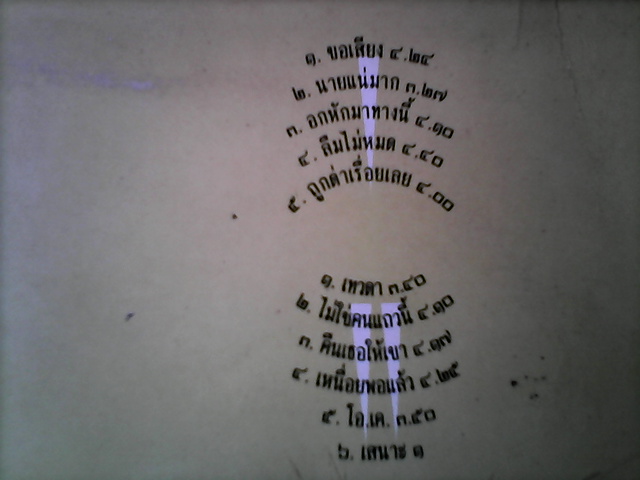 ๑. ขอเสียง ๔.๒๔
๒. นายแน่มาก ๓.๒๗
๓. อกหักมาทางนี้ ๔.๑๐
๔. ลืมไม่หมด ๔.๔๐
๕. ถูกด่าเรื่อยเลย ๔.๐๐
๑. เทวดา ๓.๔๐
๒. ไม่ใช่คนแถวนี้ ๔.๑๐
๓. คืนเธอให้เขา ๔.๑๗
๔. เหนื่อยพอแล้ว ๔.๒๕
๕. โอ.เค. ๓.๕๐
๖. เสนาะ ๑